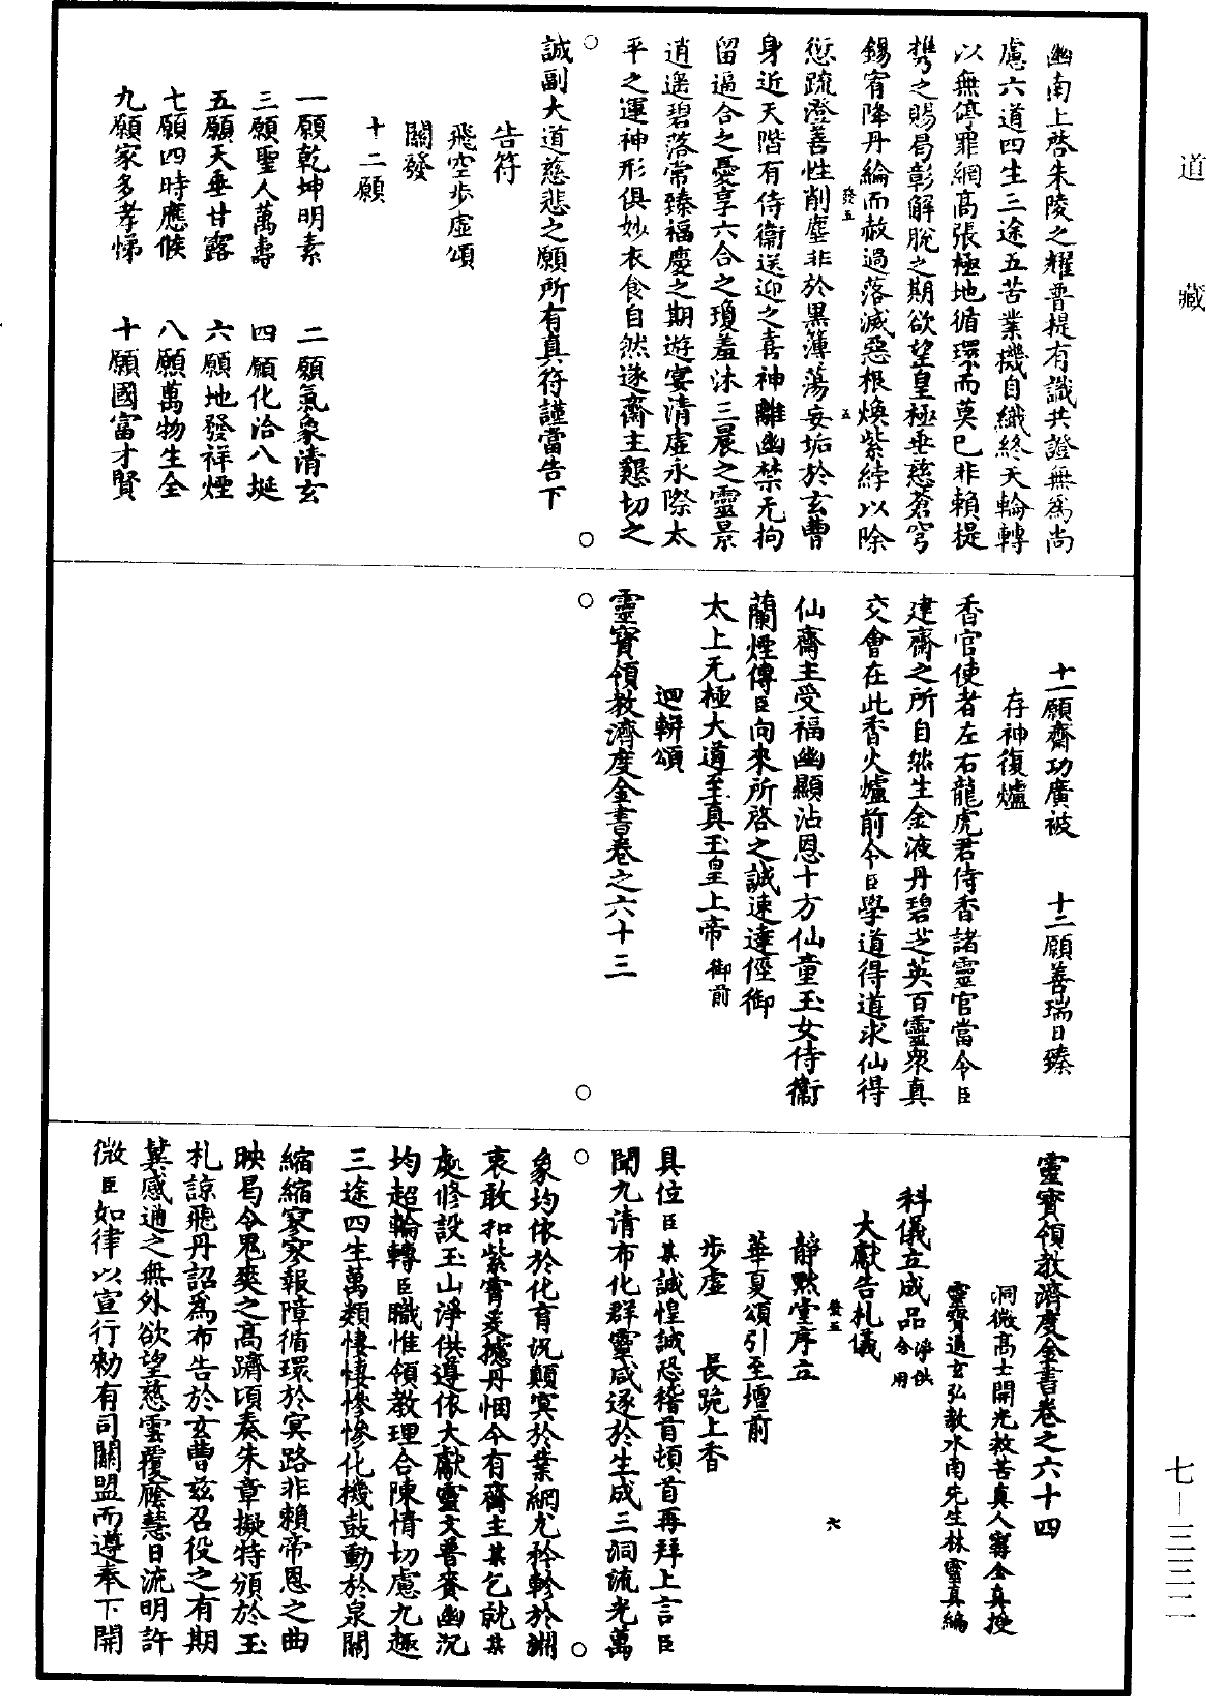 道藏
幽南上啓朱陵之耀普提有識共證無爲尚
慮六道四生三途五苦業機自織終天輪轉
以無停罪網高張極地循環而莫巳非賴提
携之賜曷彰解脫之期欲望皇極垂慈蒼穹
錫宥降丹綸而赦過落滅惡根煥紫綍以除
愆疏澄善性削塵非於黑簿蕩妄垢於玄曹
身近天階有侍衞送迎之喜神離幽禁无拘
留逼合之憂享六合之瓊羞沐三晨之靈景
逍遥碧落常臻福慶之期遊宴清虛永際太
平之運神形俱妙衣食自然遂齋主懇切之
誠副大道慈悲之願所有真符謹當告下
告符
飛空步虛頌
關發
十二願
一願乾坤明素 二願氣象清玄
三願聖人萬壽 四願化洽八埏
五願天垂甘露 六願地發祥煙
七願四時應候 八願萬物生全
九願家多孝悌 十願國富才賢
十一願齋功廣被 十二願善瑞日臻
存神復爐
香官使者左右龍虎君侍香諸靈官當令臣
建齋之所自然生金液丹碧芝英百靈衆真
交會在此香火爐前令臣學道得道求仙得
仙齋主受福幽顯沾恩十方仙童玉女侍衞
蘭煙傳臣向來所啓之誠速達徑御
太上无極大道至真玉皇上帝御前
迴軿頌
靈寳領教濟度金書卷之六十三
靈寳領教濟度金書卷之六十四
洞微高士開光救苦真人甯全真授
靈寳通玄弘教水南先生林靈真編
科儀立成品淨供合用
大獻告札儀
靜默堂序立
華夏頌引至壇前
步虛 長跪上香
具位臣某誠惶誠恐稽首頓首再拜上言臣
聞九清布化群靈咸遂於生成三洞流光萬
象均依於化育況顛冥於業網尤矜軫於淵
衷敢扣紫霄爰攄丹悃今有齋主某乞就某
處修設玉山淨供遵依大獻靈文普資幽沉
均超輪轉臣職惟領教理合陳情切慮九趣
三途四生萬類悽悽慘慘化機鼓動於泉關
縮縮寥寥報障循環於冥路非賴帝恩之曲
映曷令鬼爽之高躋頃奏朱章擬特頒於玉
札諒飛丹詔爲布告於玄曹兹召役之有期
冀感通之無外欲望慈雲覆廕慧日流明許
微臣如律以宣行勑有司關盟而遵奉下開
七－三三二